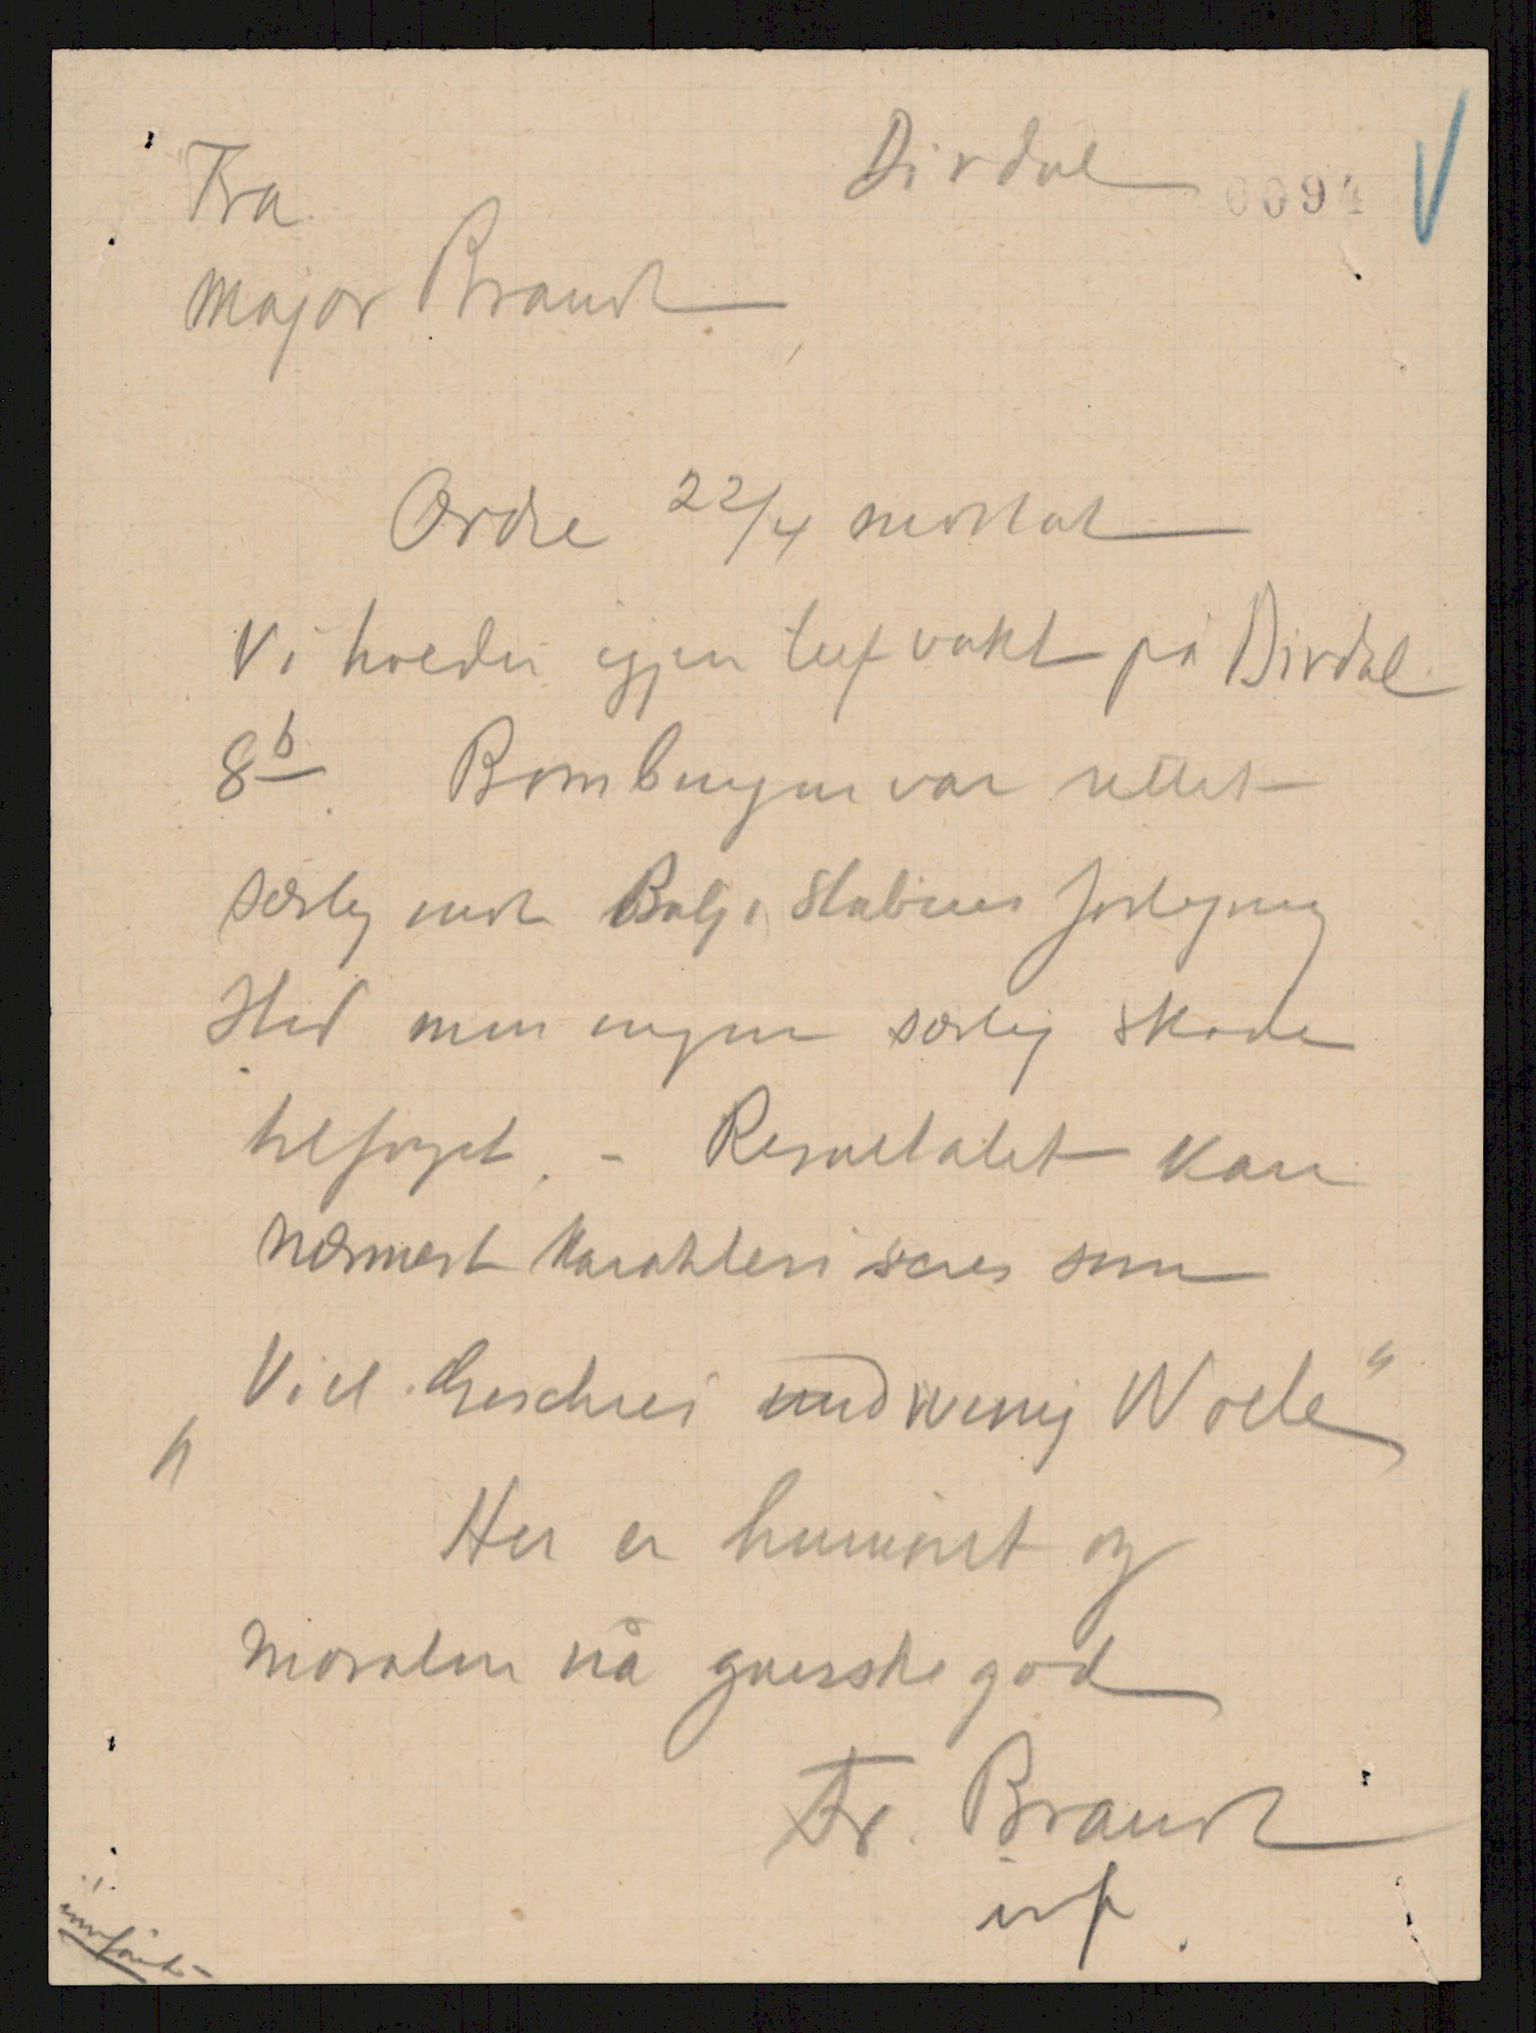 Fra Dirdal 0094
Major Brandt
Ordre 22/4 mottat
Vi holder igjen telf vakt på Dirdal
8b. Bombingen var rettet
særlig mot Batj. Stabens forlegning
sted men ingen særlig skade
tilføyet. - Resultatet kan
nærmest karakteriseres som
"Viel Geschrei und wenig Wolle"
Her er humöret og
moralen nå ganske god
Fr. Brandt
innført